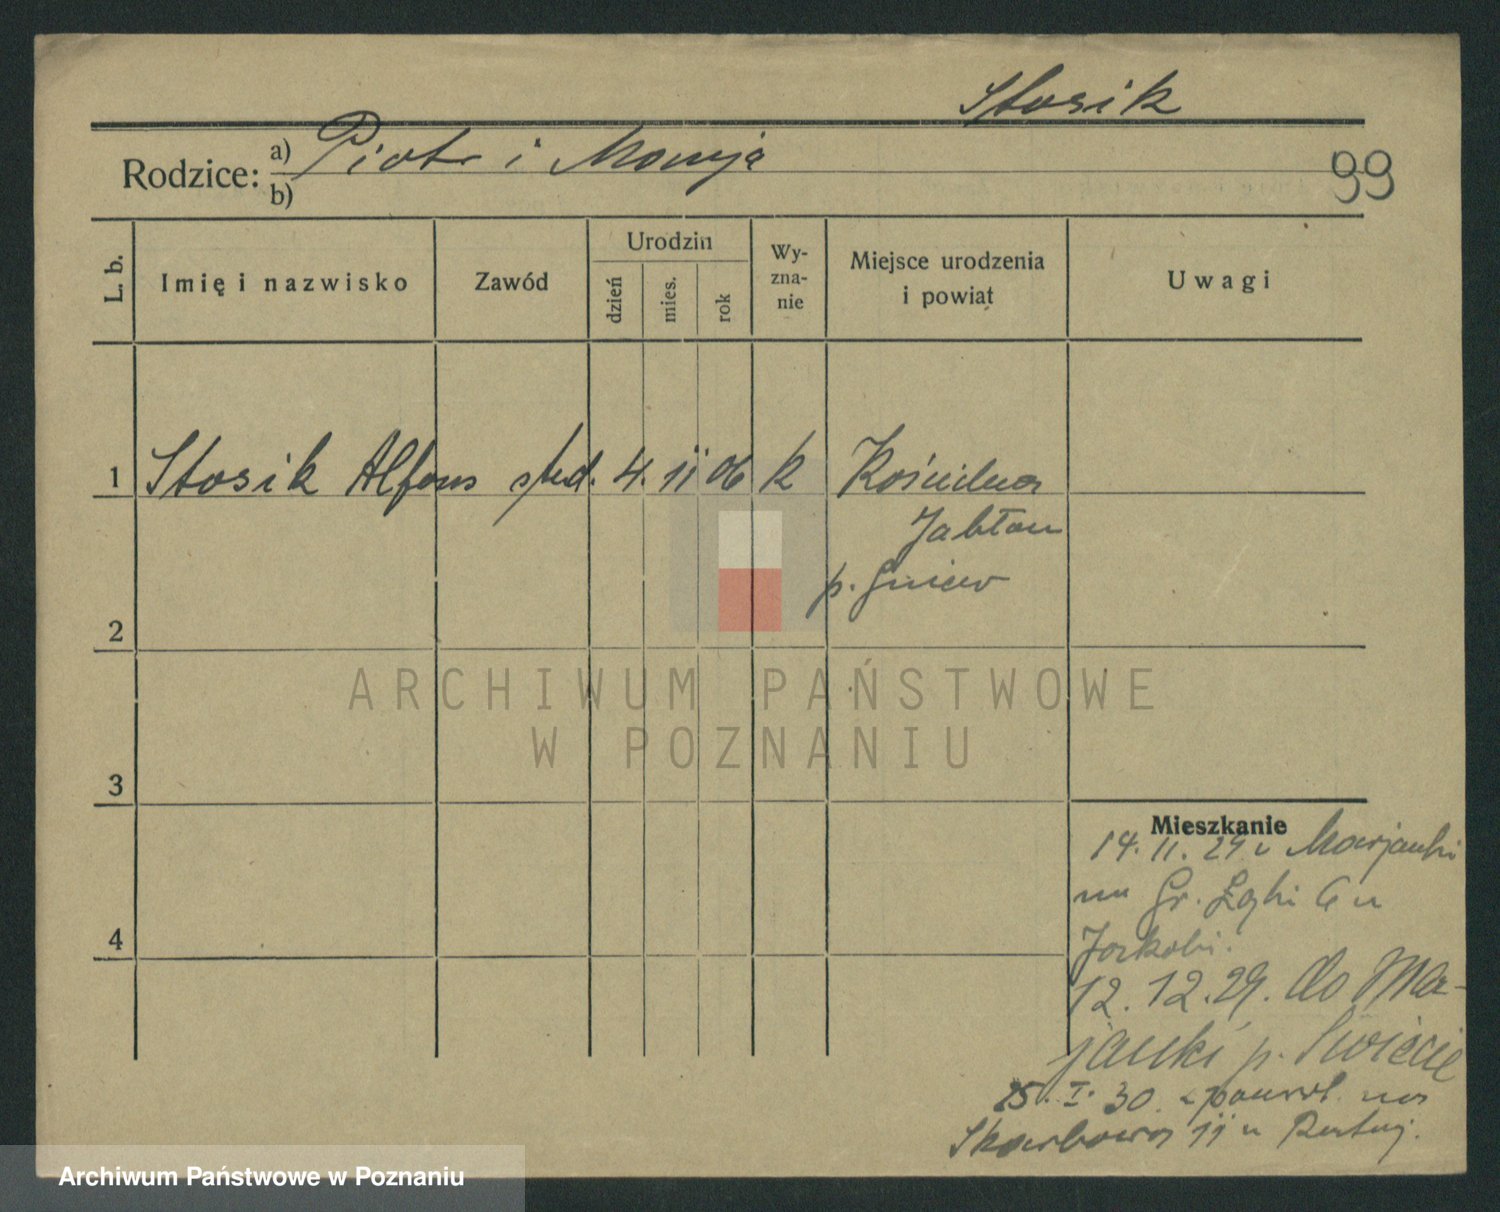 Stosik
Rodzice: a) Piotr i Marja
b)
99
L. b.
Imię i nazwisko
Zawód
Urodzin
dzień
mies.
rok
Wy-
zna-
nie
Miejsce urodzenia
i powiat
Uwagi
1 Stosik Alfons stud. 4. 11 06 k Kościelna
Jabłon
p. Gniew
2
3
4
ARCHIWUM PAŃSTWOWE
W POZNANIU
Mieszkanie
14. 11. 29 z Marjanki
na Gr. Łąki 6 u
12.12.29. do Ma-
janki p. Świecie
25. I. 30. z powrot. na
Skarbowa 11 u
Archiwum Państwowe w Poznaniu